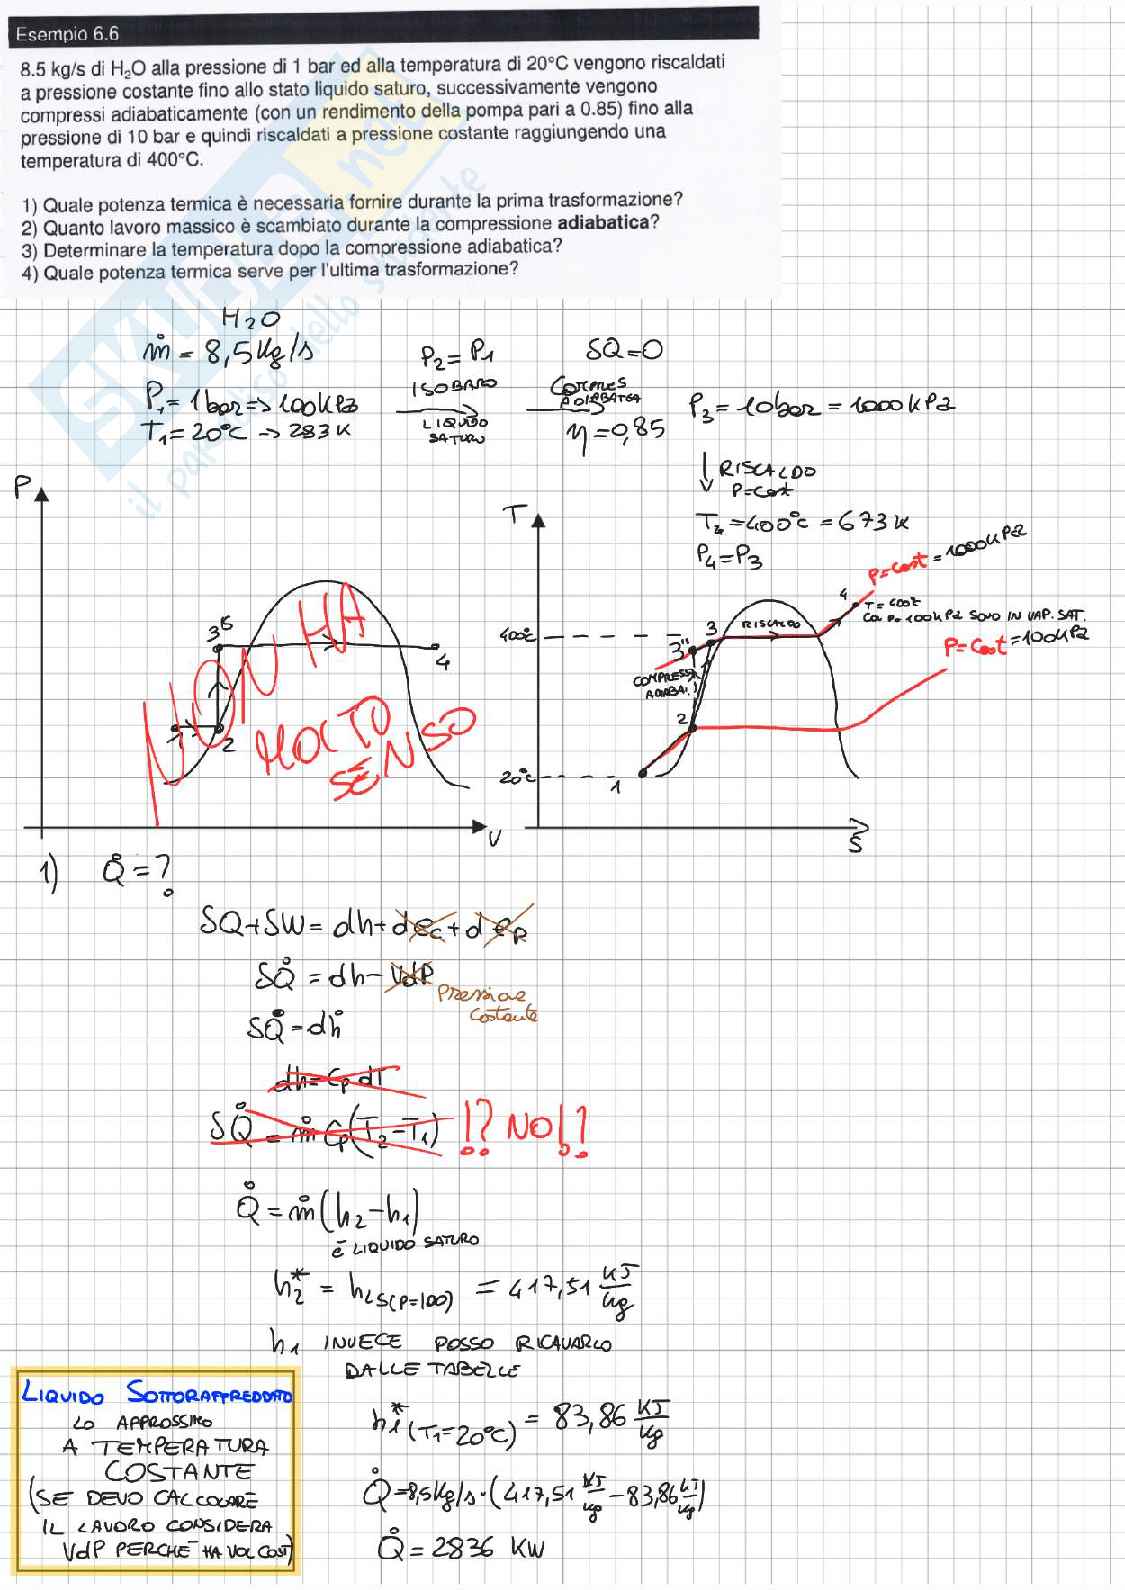 Esempio 6.6
8.5 kg/s di H₂O alla pressione di 1 bar ed alla temperatura di 20°C vengono riscaldati
a pressione costante fino allo stato liquido saturo, successivamente vengono
compressi adiabaticamente (con un rendimento della pompa pari a 0.85) fino alla
pressione di 10 bar e quindi riscaldati a pressione costante raggiungendo una
temperatura di 400°C.
1) Quale potenza termica è necessaria fornire durante la prima trasformazione?
2) Quanto lavoro massico è scambiato durante la compressione adiabatica?
3) Determinare la temperatura dopo la compressione adiabatica?
4) Quale potenza termica serve per l'ultima trasformazione?
H₂O
ṁ = 8,5 Kg/s
P₁ = 1 bar => 100 KPa
T₁ = 20°C -> 283 K
P₂ = P₁
ISOBARO
LIQUIDO
SATURO
δQ = 0
COMPRES
ADIABATICA
η = 0,85
P₃ = 10 bar = 1000 KPa
RISCALDO
P=Cost
T₄ = 400°C = 673 K
P₄ = P₃
P
3
2
1
4
V
NON HA
MOLTO
SENSO
T
400°C
20°C
1
2
3"
3
4
COMPRESS
ADIABA.
RISCALDO
P=Cost = 1000 KPa
T = 400°C
P = 100 KPa SONO IN VAP. SAT.
P=Cost = 100 KPa
S
1) Q̇ = ?
δQ + δW = dh + dec + dep
δQ̇ = dh - VdP
Pressione
Costante
δQ̇ = dḣ
dh = Cp dT
δQ̇ = ṁ Cp (T₂ - T₁) !? NO!?
Q̇ = ṁ (h₂ - h₁)
è LIQUIDO SATURO
h₂* = hLS(P=100) = 417,51 KJ/kg
h₁ INVECE POSSO RICAVARLO
DALLE TABELLE
h₁*(T₁=20°C) = 83,86 KJ/Kg
Q̇ = 8,5 Kg/s · (417,51 KJ/kg - 83,86 KJ/kg)
Q̇ = 2836 KW
LIQUIDO SOTTORAFFREDDATO
LO APPROSSIMO
A TEMPERATURA
COSTANTE
(SE DEVO CALCOLARE
IL LAVORO CONSIDERA
VdP PERCHÉ HA VOL COST)
SKUOLA.net
il paradiso dello studente